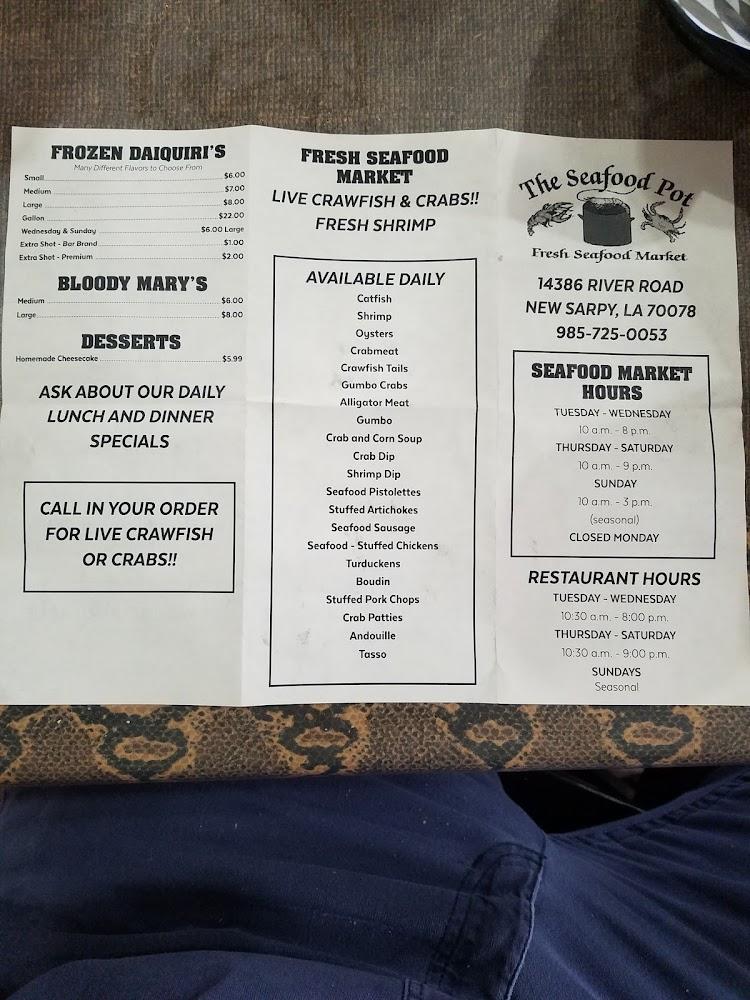 FROZEN DAIQUIRI'S
Many Different Flavors to Choose From
Small $6.00
Medium $7.00
Large $8.00
Gallon $22.00
Wednesday & Sunday $6.00 Large
Extra Shot - Bar Brand $1.00
Extra Shot - Premium $2.00
BLOODY MARY'S
Medium $6.00
Large $8.00
DESSERTS
Homemade Cheesecake $5.99
ASK ABOUT OUR DAILY
LUNCH AND DINNER
SPECIALS
CALL IN YOUR ORDER
FOR LIVE CRAWFISH
OR CRABS!!
FRESH SEAFOOD
MARKET
LIVE CRAWFISH & CRABS!!
FRESH SHRIMP
AVAILABLE DAILY
Catfish
Shrimp
Oysters
Crabmeat
Crawfish Tails
Gumbo Crabs
Alligator Meat
Gumbo
Crab and Corn Soup
Crab Dip
Shrimp Dip
Seafood Pistolettes
Stuffed Artichokes
Seafood Sausage
Seafood - Stuffed Chickens
Turduckens
Boudin
Stuffed Pork Chops
Crab Patties
Andouille
Tasso
The Seafood Pot
Fresh Seafood Market
14386 RIVER ROAD
NEW SARPY, LA 70078
985-725-0053
SEAFOOD MARKET
HOURS
TUESDAY - WEDNESDAY
10 a.m. - 8 p.m.
THURSDAY - SATURDAY
10 a.m. - 9 p.m.
SUNDAY
10 a.m. - 3 p.m.
(seasonal)
CLOSED MONDAY
RESTAURANT HOURS
TUESDAY - WEDNESDAY
10:30 a.m. - 8:00 p.m.
THURSDAY - SATURDAY
10:30 a.m. - 9:00 p.m.
SUNDAYS
Seasonal